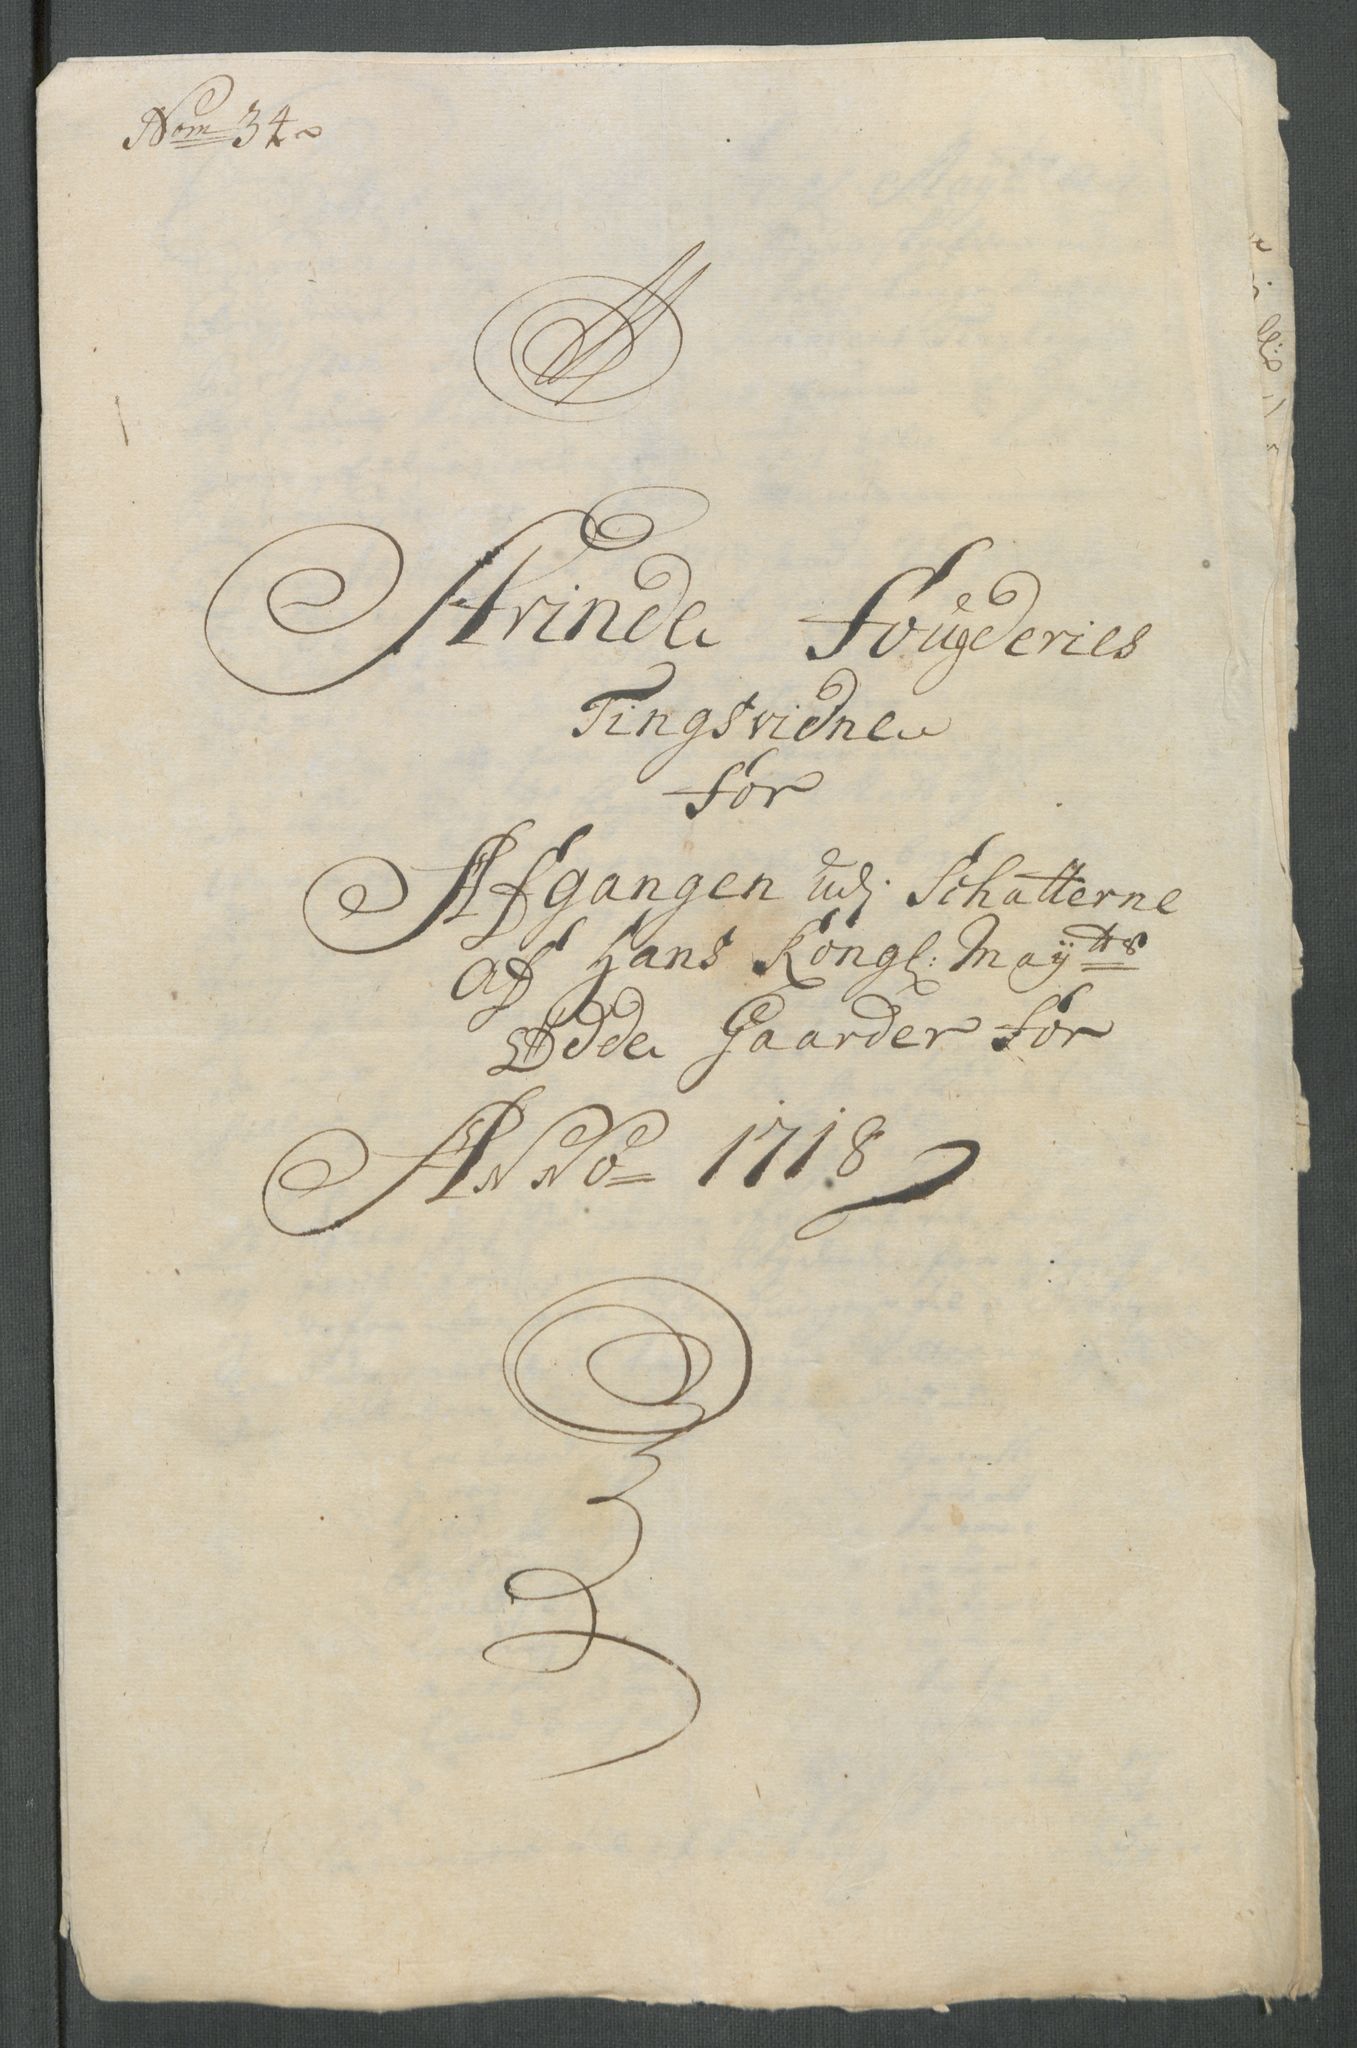 Nom 34
Avinde Fougderies
Tingsvidne
for
Afgangen udj Schatterne
af Hans Kongl: Maÿtts
Ødde Gaarder for
ANNo 1718